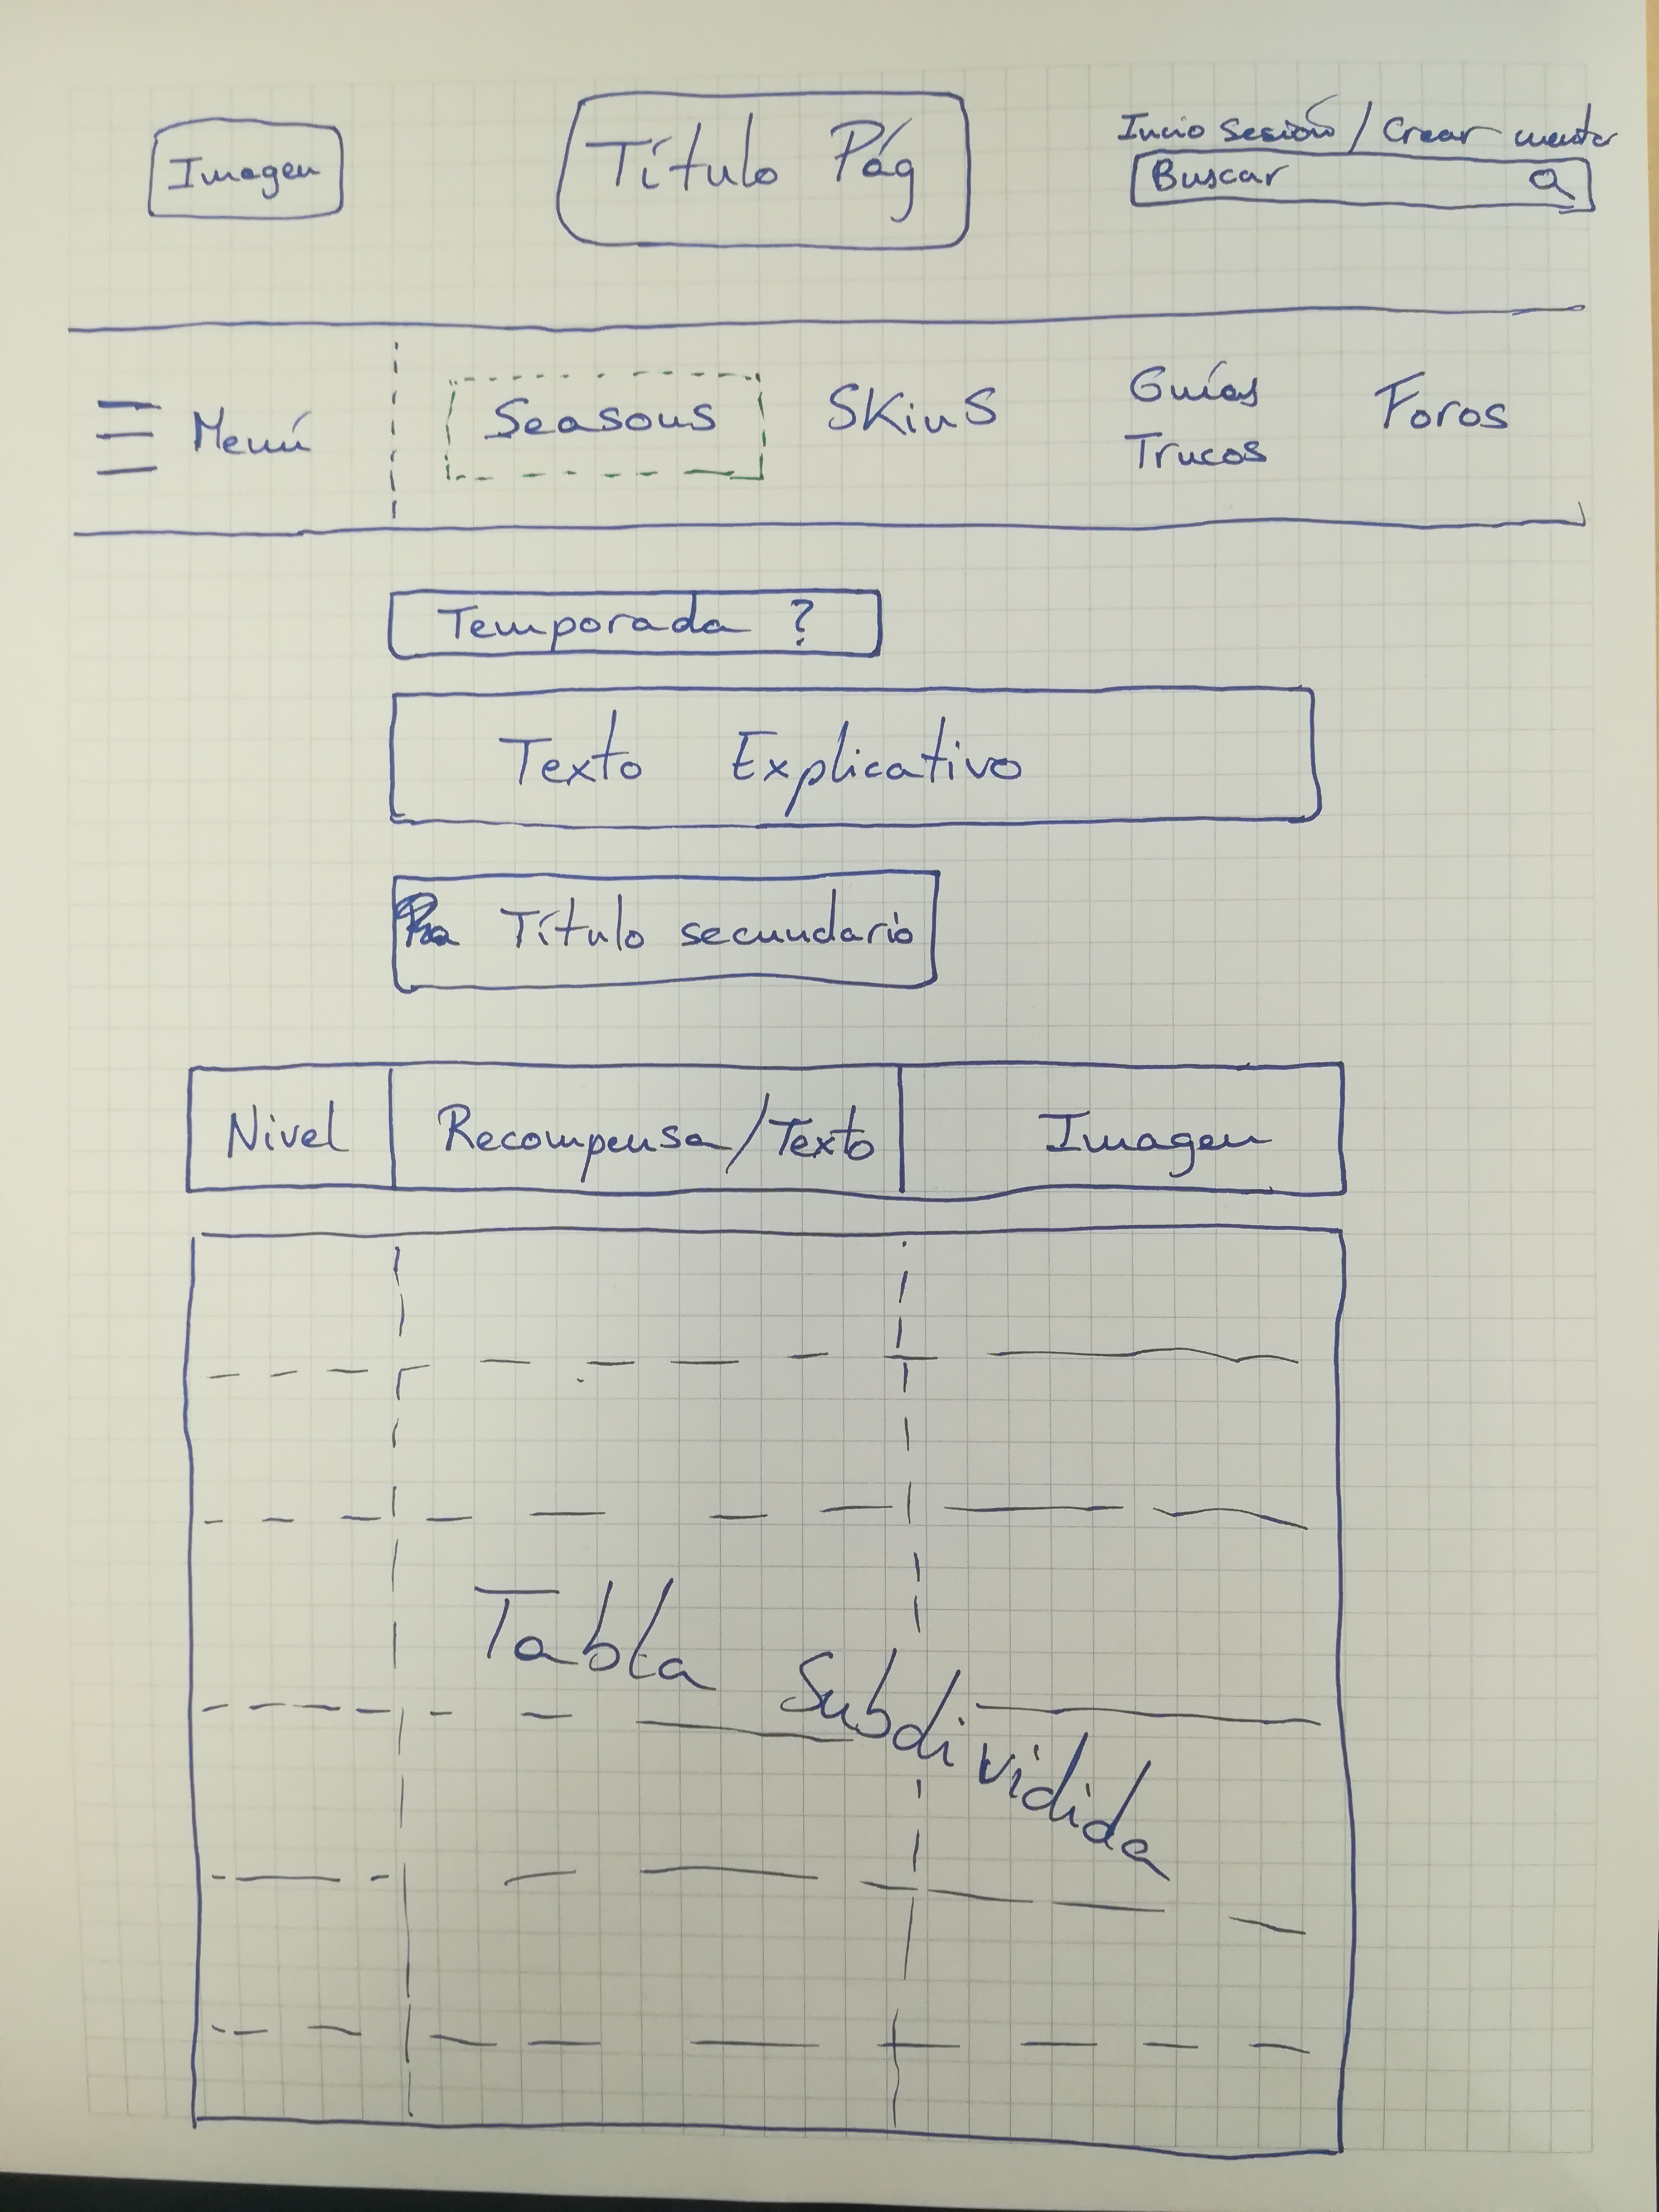 Imagen
Título Pág
Inicio Sesión / Crear cuenta
Buscar
Menú
Seasons
SKinS
Guías
Trucos
Foros
Temporada ?
Texto Explicativo
Título secundario
Nivel
Recompensa/Texto
Imagen
Tabla Subdividida